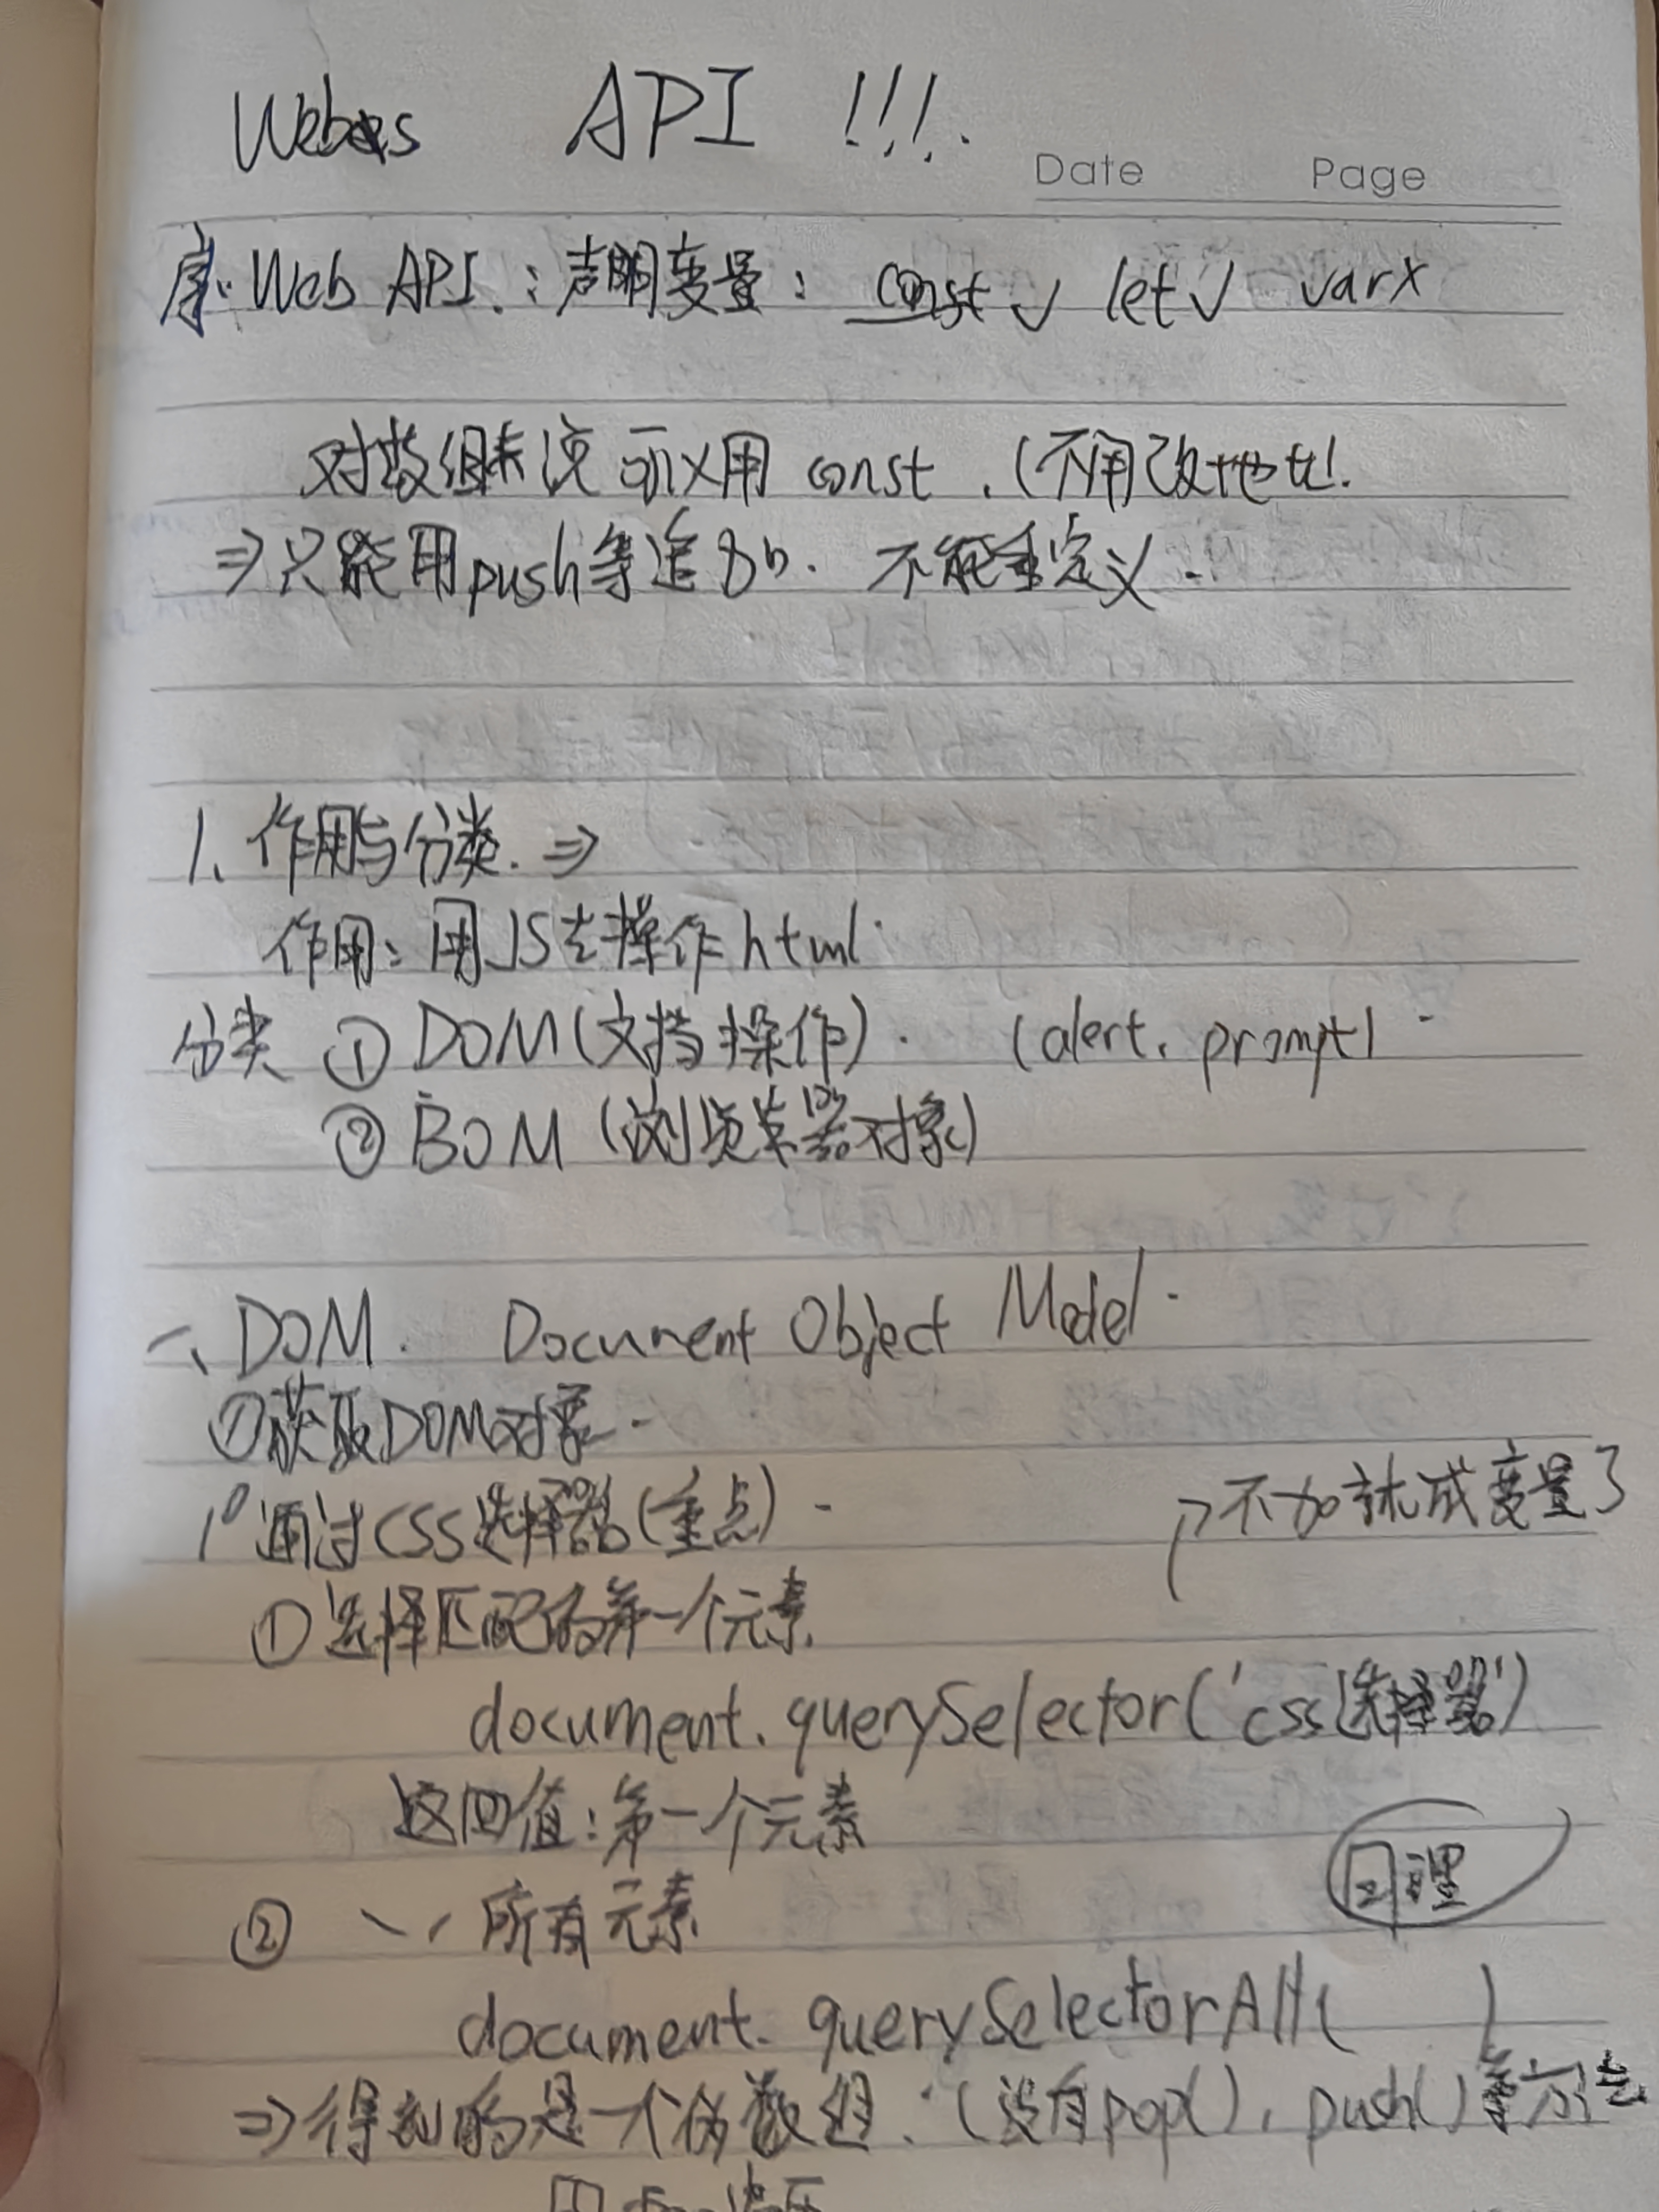 Webs API !!!.
Date Page
序. Web API.：声明变量： const ✓ let ✓ var ×
对数组来说可以用 const .(不用改地址.
⇒只能用push等追加. 不能重定义.
1、作用与分类. ⇒
作用：用JS去操作html.
分类 ① DOM(文档操作). (alert, prompt)
② BOM (浏览器对象)
一、DOM. Document Object Model.
①获取DOM对象.
1° 通过CSS选择器(重点).
不加就成变量了
①选择匹配的第一个元素.
document.querySelector('css选择器')
返回值：第一个元素
② 所有元素
document.querySelectorAll( )
⇒得到的是一个伪数组.(没有pop(), push()等方法